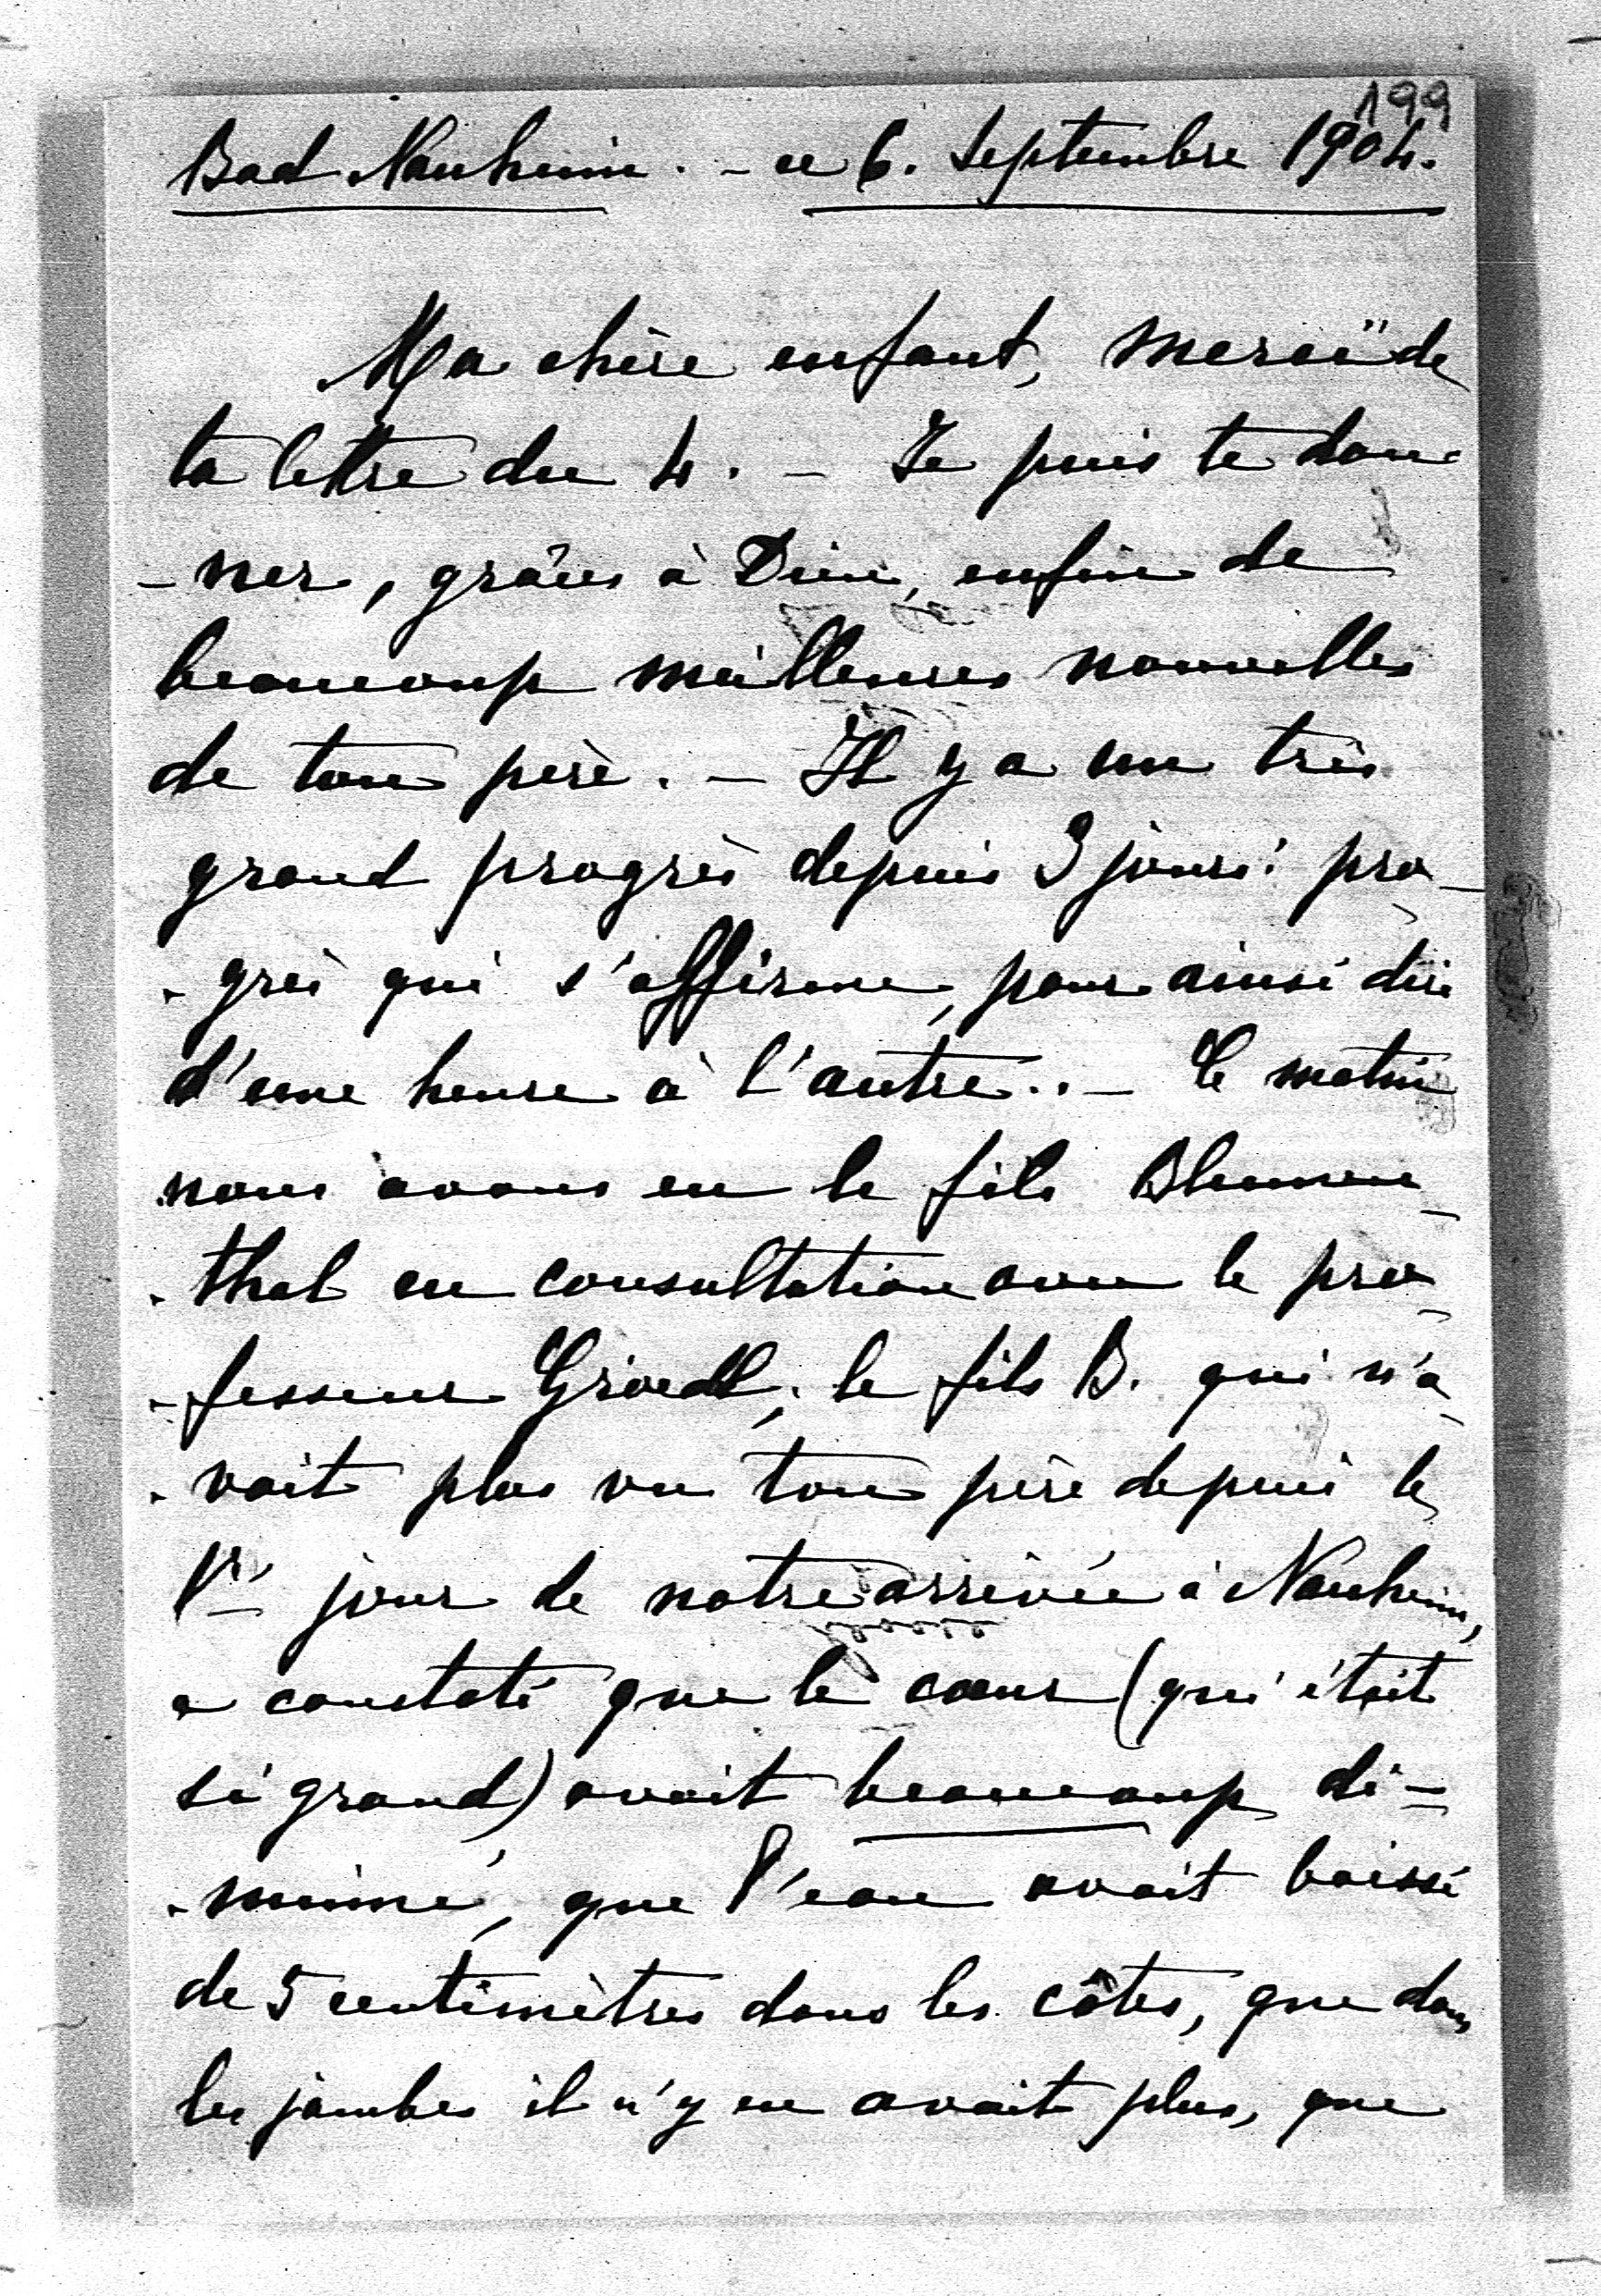 199
Bad Nauheim. - ce 6. Septembre 1904.
Ma chère enfant, merci de
ta lettre du 4. - Je puis te don-
-ner, grâces à Dieu, enfin de
beaucoup meilleures nouvelles
de ton père. - Il y a un très
grand progrès depuis 3 jours: pro-
-grès qui s'affirme, pour ainsi dire
d'une heure à l'autre.. - Ce matin
nous avons eu le fils Blumen-
-thal en consultation avec le pro-
-fesseur Groedl; le fils B. qui n'a-
-vait plus vu ton père depuis le
1er jour de notre arrivée à Nauheim,
a constaté que le cœur (qui était
si grand) avait beaucoup di-
-minué, que l'eau avait baissé
de 5 centimètres dans les côtes, que dans
les jambes il n'y en avait plus, que